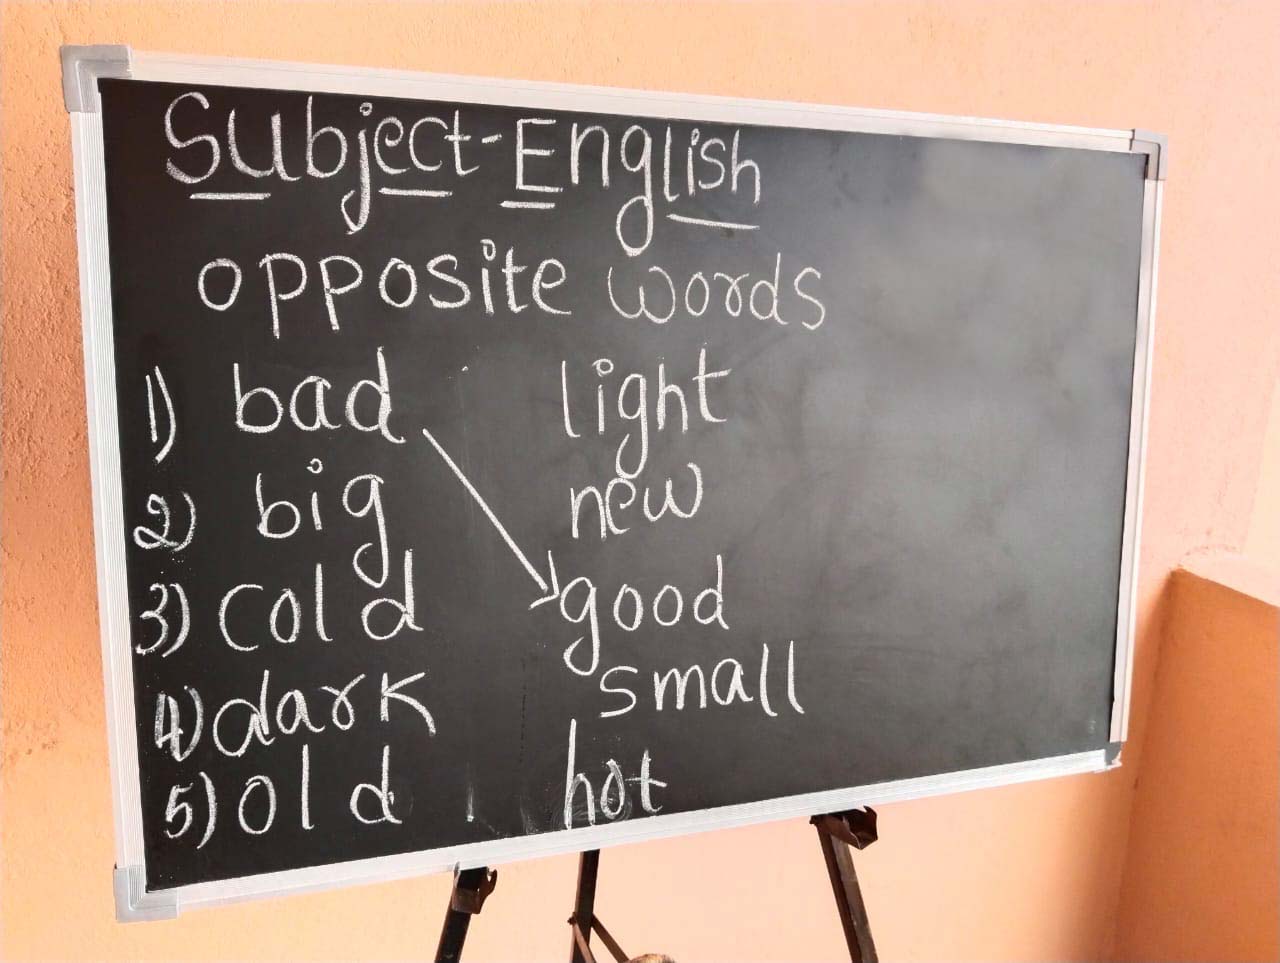 Subject-English
opposite words
1) bad light
2) big new
3) cold good
4) dark small
5) old hot